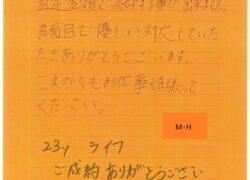 査定金額で売却する事が出来ました。
真面目で優しい対応していた
だきありがとうございます。
これからもお仕事頑張って
ください。
M-H
23y ライフ
ご成約ありがとうござい